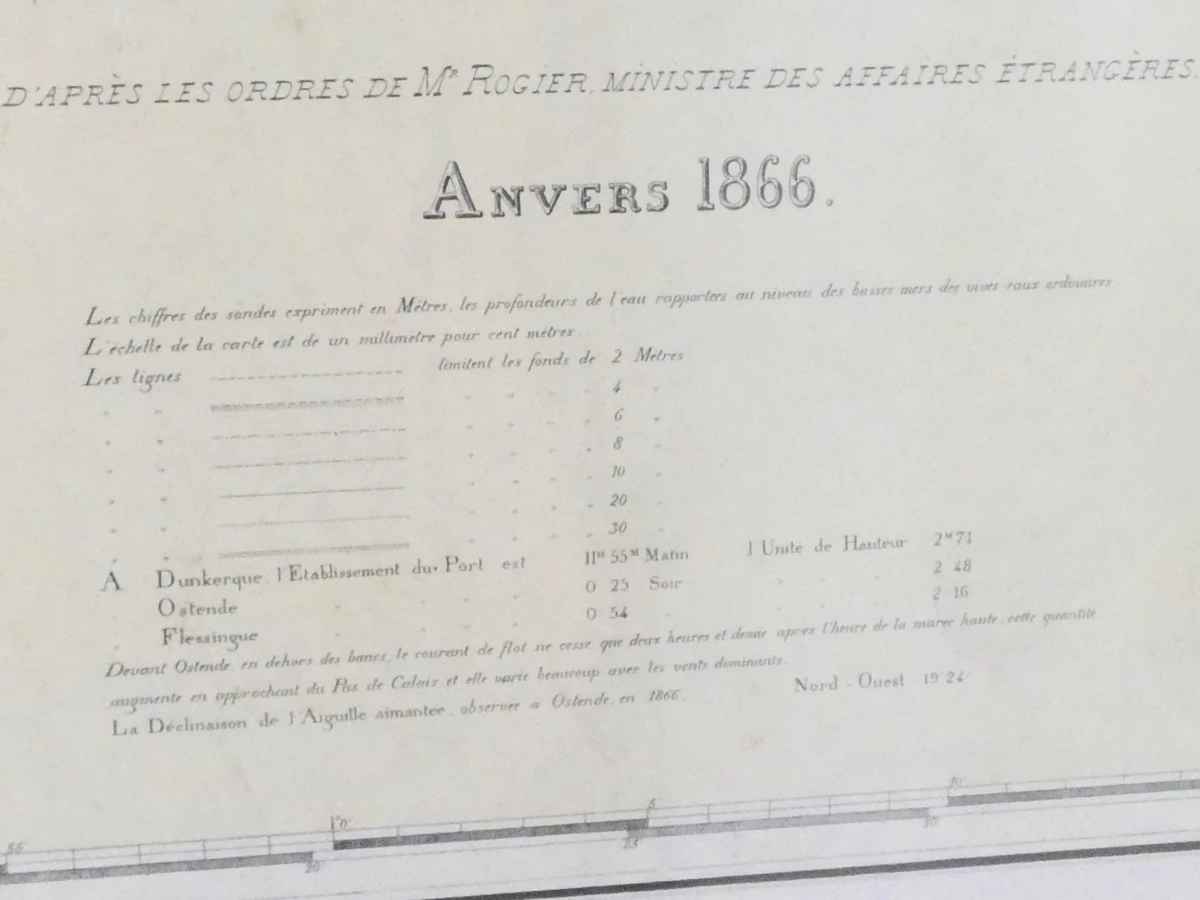 D'APRÈS LES ORDRES DE Mʀ ROGIER, MINISTRE DES AFFAIRES ÉTRANGÈRES.
ANVERS 1866.
Les chiffres des sondes expriment en Mètres, les profondeurs de l'eau rapportees au niveau des basses mers des vives-eaux ordinaires.
L'échelle de la carte est de un millimetre pour cent metres.
Les lignes limitent les fonds de 2 Metres
" " " " " " 4 "
" " " " " " 6 "
" " " " " " 8 "
" " " " " " 10 "
" " " " " " 20 "
" " " " " " 30 "
A Dunkerque, l'Etablissement du Port est 11ᴴ 55ᴹ Matin l'Unité de Hauteur 2ᴹ71
Ostende " " " 0 25 Soir " " 2 48
Flessingue " " " 0 54 " " 2 16
Devant Ostende, en dehors des bancs, le courant de flot ne cesse que deux heures et demie apres l'heure de la maree haute, cette quantite
augmente en approchant du Pas de Calais et elle varie beaucoup avec les vents dominants.
La Déclinaison de l'Aiguille aimantee, observee a Ostende, en 1866. Nord-Ouest 19 24
55 1°0' 5 10
20 25 30